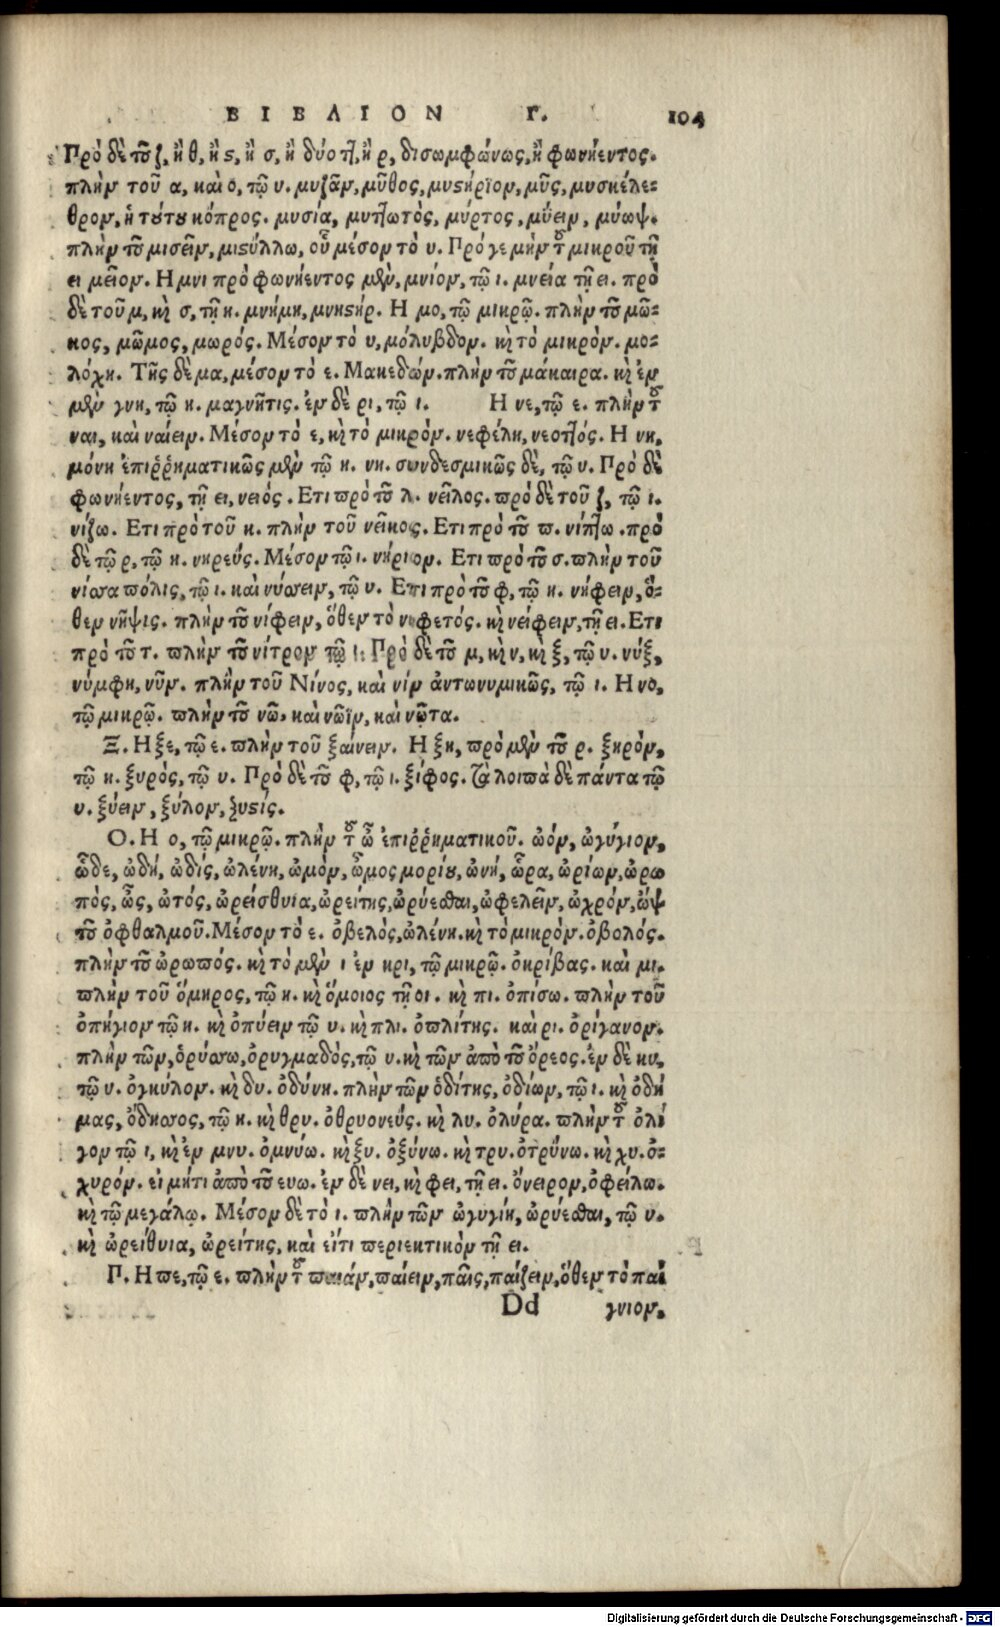 ΒΙΒΛΙΟΝ Γ. 104
Πρὸ δὲ τοῦ ζ, ἢ θ, ἢ ϛ, ἢ σ, ἢ δύο τ͂ῖ, ἢ ρ, δισωμφώνως, ἢ φωνήεντος.
πλὴν τοῦ α, καὶ ο, τῷ υ. μυζᾶν, μῦθος, μυϛήριον, μῦς, μυσκέλε-
θρον, ἡ τούτου κόπρος. μυσία, μυττωτὸς, μύρτος, μύειν, μύωψ.
πλὴν τοῦ μισεῖν, μιϛύλλω, οὗ μέσον τὸ υ. Πρό γε μὴν τοῦ μικροῦ τῇ
ει μεῖον. Η μνι πρὸ φωνήεντος μὲν, μνίον, τῷ ι. μνεία τῇ ει. πρὸ
δὲ τοῦ μ, καὶ σ, τῇ η. μνήμη, μνηϛήρ. Η μο, τῷ μικρῷ. πλὴν τοῦ μῶ-
κος, μῶμος, μωρός. Μέσον τὸ υ, μόλυβδον. καὶ τὸ μικρὸν. μο-
λόχη. Τῆς δὲ μα, μέσον τὸ ε. Μακεδών. πλὴν τοῦ μάκαιρα. καὶ ἐν
μὲν γνη, τῷ η. μαγνῆτις. ἐν δὲ ρι, τῷ ι. Η νε, τῷ ε. πλὴν τοῦ
ναι, καὶ ναίειν. Μέσον τὸ ε, καὶ τὸ μικρὸν. νεφέλη, νεοττός. Η νη,
μόνη ἐπιῤῥηματικῶς μὲν τῷ η. νη. συνδεσμικῶς δὲ, τῷ υ. Πρὸ δὲ
φωνήεντος, τῇ ει, νειός. Ετι πρὸ τοῦ λ. νεῖλος. πρὸ δὲ τοῦ ζ, τῷ ι.
νίζω. Ετι πρὸ τοῦ κ. πλὴν τοῦ νεῖκος. Ετι πρὸ τοῦ π. νίπτω. πρὸ
δὲ τῷ ρ, τῷ η. νηρεύς. Μέσον τῷ ι. νήριον. Ετι πρὸ τοῦ σ. πλὴν τοῦ
νίσσα πόλις, τῷ ι. καὶ νύσσειν, τῷ υ. Ετι πρὸ τοῦ φ, τῷ η. νήφειν, ὅ-
θεν νῆψις. πλὴν τοῦ νίφειν, ὅθεν τὸ νιφετός. καὶ νείφειν, τῇ ει. Ετι
πρὸ τοῦ τ. πλὴν τοῦ νίτρον τῷ ι. Πρὸ δὲ τοῦ μ, καὶ ν, καὶ ξ, τῷ υ. νύξ,
νύμφη, νῦν. πλὴν τοῦ Νίνος, καὶ νίν ἀντωνυμικῶς, τῷ ι. Η νο,
τῷ μικρῷ. πλὴν τοῦ νῶ, καὶ νῶϊν, καὶ νῶτα.
Ξ. Η ξε, τῷ ε. πλὴν τοῦ ξαίνειν. Η ξη, πρὸ μὲν τοῦ ρ. ξηρόν,
τῷ η. ξυρός, τῷ υ. Πρὸ δὲ τοῦ φ, τῷ ι. ξίφος. τὰ λοιπὰ δὲ πάντα τῷ
υ. ξύειν, ξύλον, ξυϛίς.
Ο. Η ο, τῷ μικρῷ. πλὴν τοῦ ὦ ἐπιῤῥηματικοῦ. ὠόν, ὠγύγιον,
ὧδε, ὠδή, ὠδίς, ὠλένη, ὠμὸν, ὦμος μορίου, ὠνή, ὥρα, ὠρίων, ὠρω
πὸς, ὧς, ὠτός, ὠρείσθυια, ὠρείτης, ὠρύεσθαι, ὠφελεῖν, ὠχρόν, ὤψ
τοῦ ὀφθαλμοῦ. Μέσον τὸ ε. ὀβελὸς, ὠλένη. καὶ τὸ μικρὸν. ὀβολός.
πλὴν τοῦ ὠρωπός. καὶ τὸ μὲν ι ἐν κρι, τῷ μικρῷ. ὀκρίβας. καὶ μι.
πλὴν τοῦ ὅμηρος, τῷ η. καὶ ὅμοιος τῇ οι. καὶ πι. ὀπίσω. πλὴν τοῦ
ὀπήγιον τῷ η. καὶ ὀπύειν τῷ υ. καὶ πλι. ὁπλίτης. καὶ ρι. ὀρίγανον.
πλὴν τῶν, ὀρύσσω, ὀρυγμαδὸς, τῷ υ. καὶ τῶν ἀπὸ τοῦ ὄρεος. ἐν δὲ κυ,
τῷ υ. ὀγκύλον. καὶ δυ. ὀδύνη. πλὴν τῶν ὁδίτης, ὁδίων, τῷ ι. καὶ ὁδή
μας, ὄδησσος, τῷ η. καὶ θρυ. ὀθρυονεύς. καὶ λυ. ὀλύρα. πλὴν τοῦ ὀλί
γον τῷ ι, καὶ ἐν μνυ. ὀμνύω. καὶ ξυ. ὀξύνω. καὶ τρυ. ὀτρύνω. καὶ χυ. ὀ-
χυρόν. εἰ μήτι ἀπὸ τοῦ ευω. ἐν δὲ νει, καὶ φει, τῇ ει. ὄνειρον, ὀφείλω.
καὶ τῷ μεγάλῳ. Μέσον δὲ τὸ ι. πλὴν τῶν ὠγυγίη, ὠρύεσθαι, τῷ υ.
καὶ ὠρείθυια, ὠρείτης, καὶ εἴτι περιεκτικὸν τῇ ει.
Π. Η πε, τῷ ε. πλὴν τοῦ παιάν, παίειν, παῖς, παίζειν, ὅθεν τὸ παί
Dd γνιον,
Digitalisierung gefördert durch die Deutsche Forschungsgemeinschaft - DFG